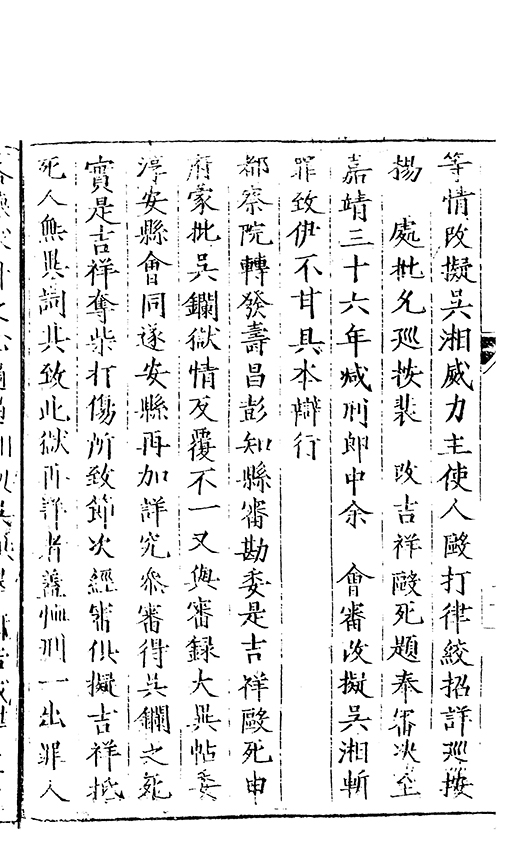 等情改擬吳湘威力主使人毆打律絞招詳巡按
楊　處批允巡按裴　改吉祥毆死題奉審決至
嘉靖三十六年減刑郎中余　會審改擬吳湘斬
罪致伊不甘具本辯行
都察院轉發壽昌彭知縣審勘委是吉祥毆死申
府蒙批吳鑭獄情反覆不一又與審録大異帖委
淳安縣會同遂安縣再加詳究叅審得吳鑭之死
實是吉祥奪柴打傷所致節次經審供擬吉祥抵
死人無異詞其致此獄再詳者蓋恤刑一出罪人